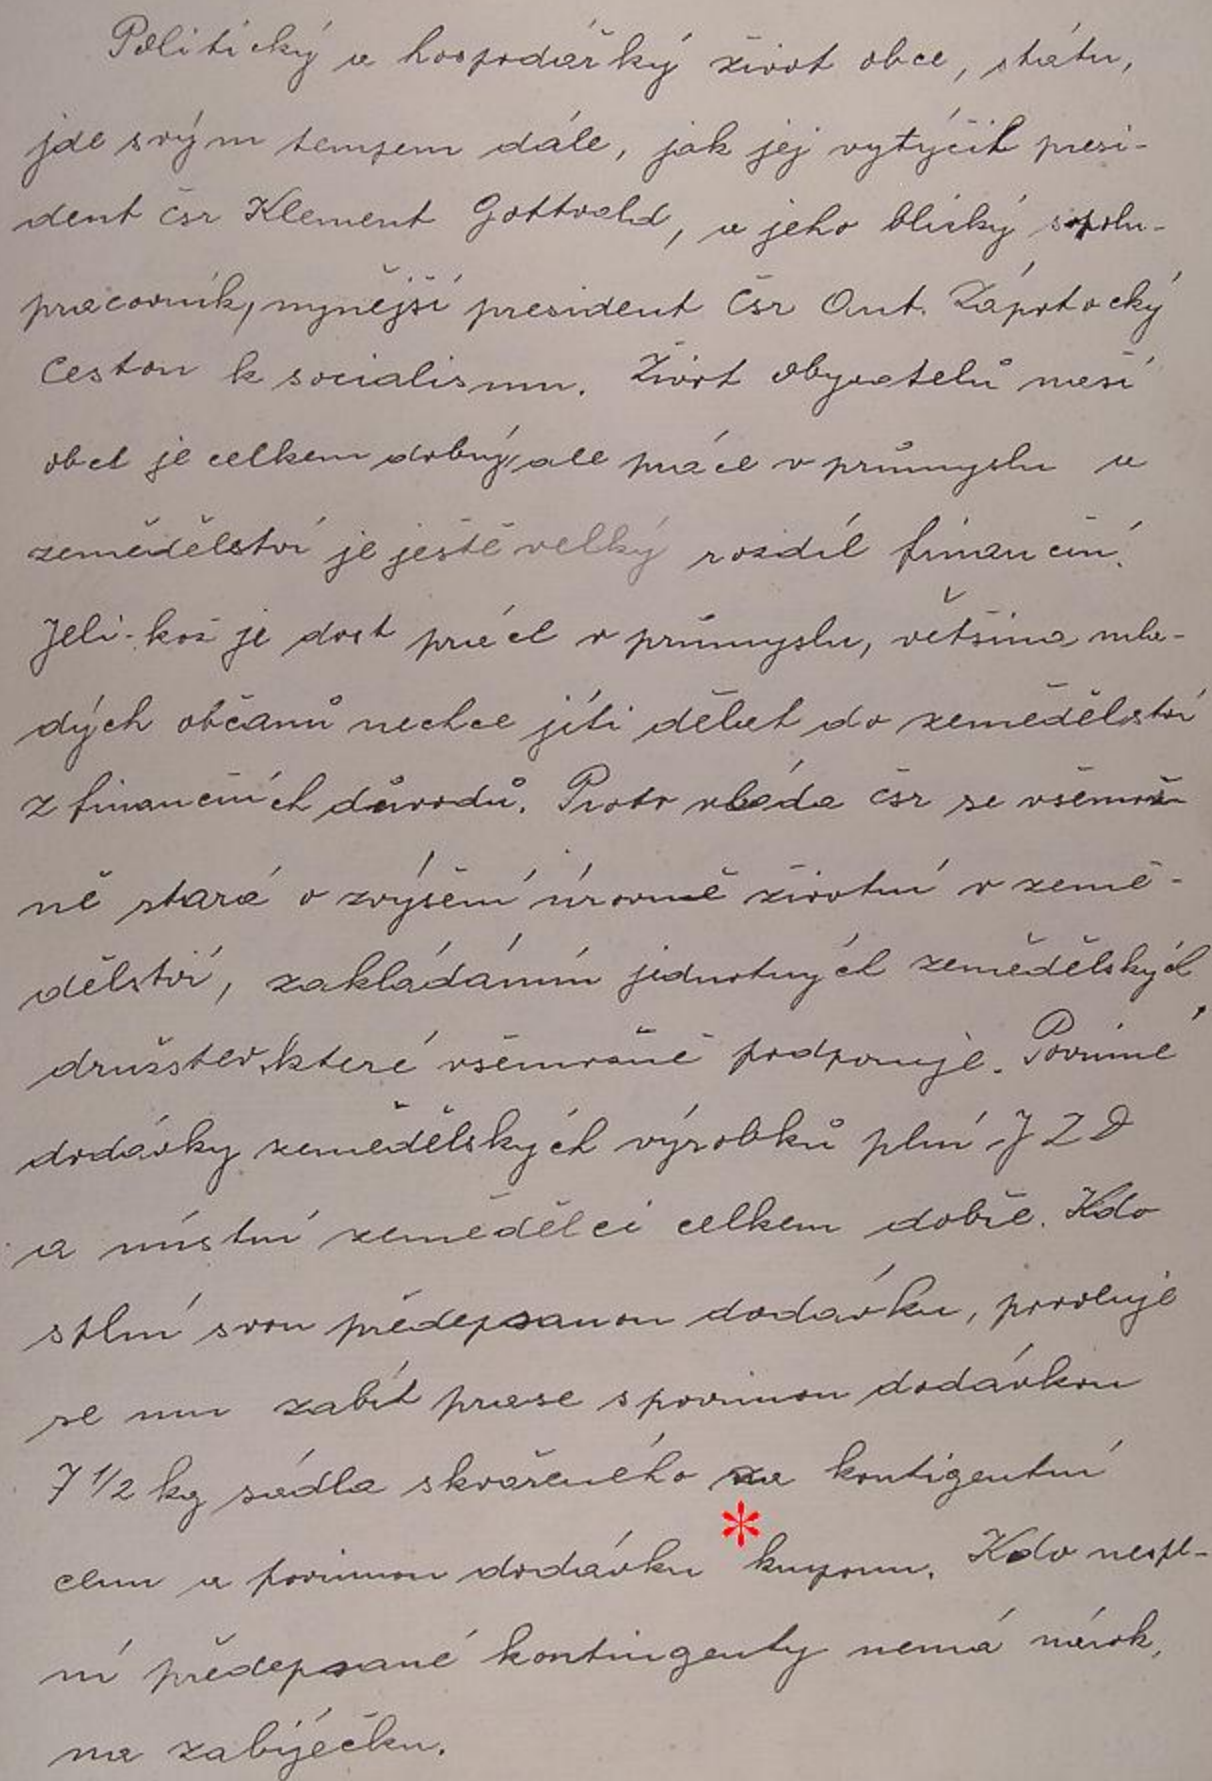 Politický a hospodářský život obce, státu,
jde svým tempem dále, jak jej vytýčil presi-
dent čsr Klement Gottvald, a jeho blízký spolu-
pracovník, nynější president Čsr Ant. Zápotocký
Cestou k socialismu. Život obyvatelů naší
obce je celkem dobrý, ale práce v průmyslu a
zemědělství je ještě velký rozdíl finanční.
Jeli-kož je dost prácě v průmyslu, většina mla-
dých občanů nechce jíti dělat do zemědělství
z finančních důvodů. Proto vláda čsr se všemož-
ně stará o zvýšení úrovně životní v země-
dělství, zakládáním jednotných zemědělských
družstev, které všemožně podporuje. Povinné
dodávky zemědělských výrobků plní J Z D
a místní zemědělci celkem dobře. Kdo
splní svou předepsanou dodávku, povoluje
se mu zabít prase s povinnou dodávkou
7 1/2 kg sádla skvařeného za kontigentní
cenu a povinnou dodávku kuponu. Kdo nespl-
ní předepsané kontingenty nemá nárok,
na zabíječku.